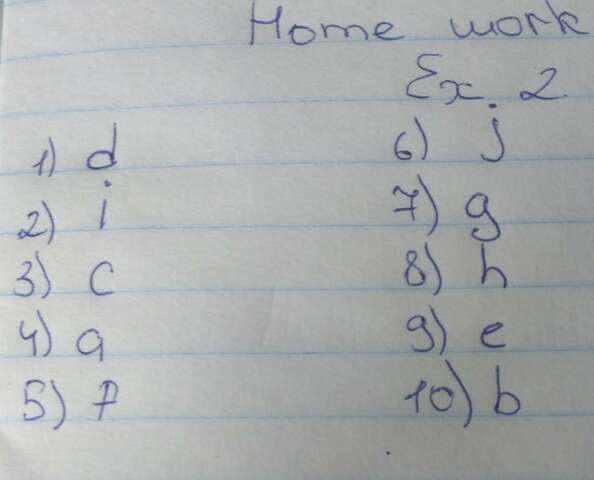 Home work
Ex. 2
1) d
2) i
3) c
4) a
5) f
6) j
7) g
8) h
9) e
10) b